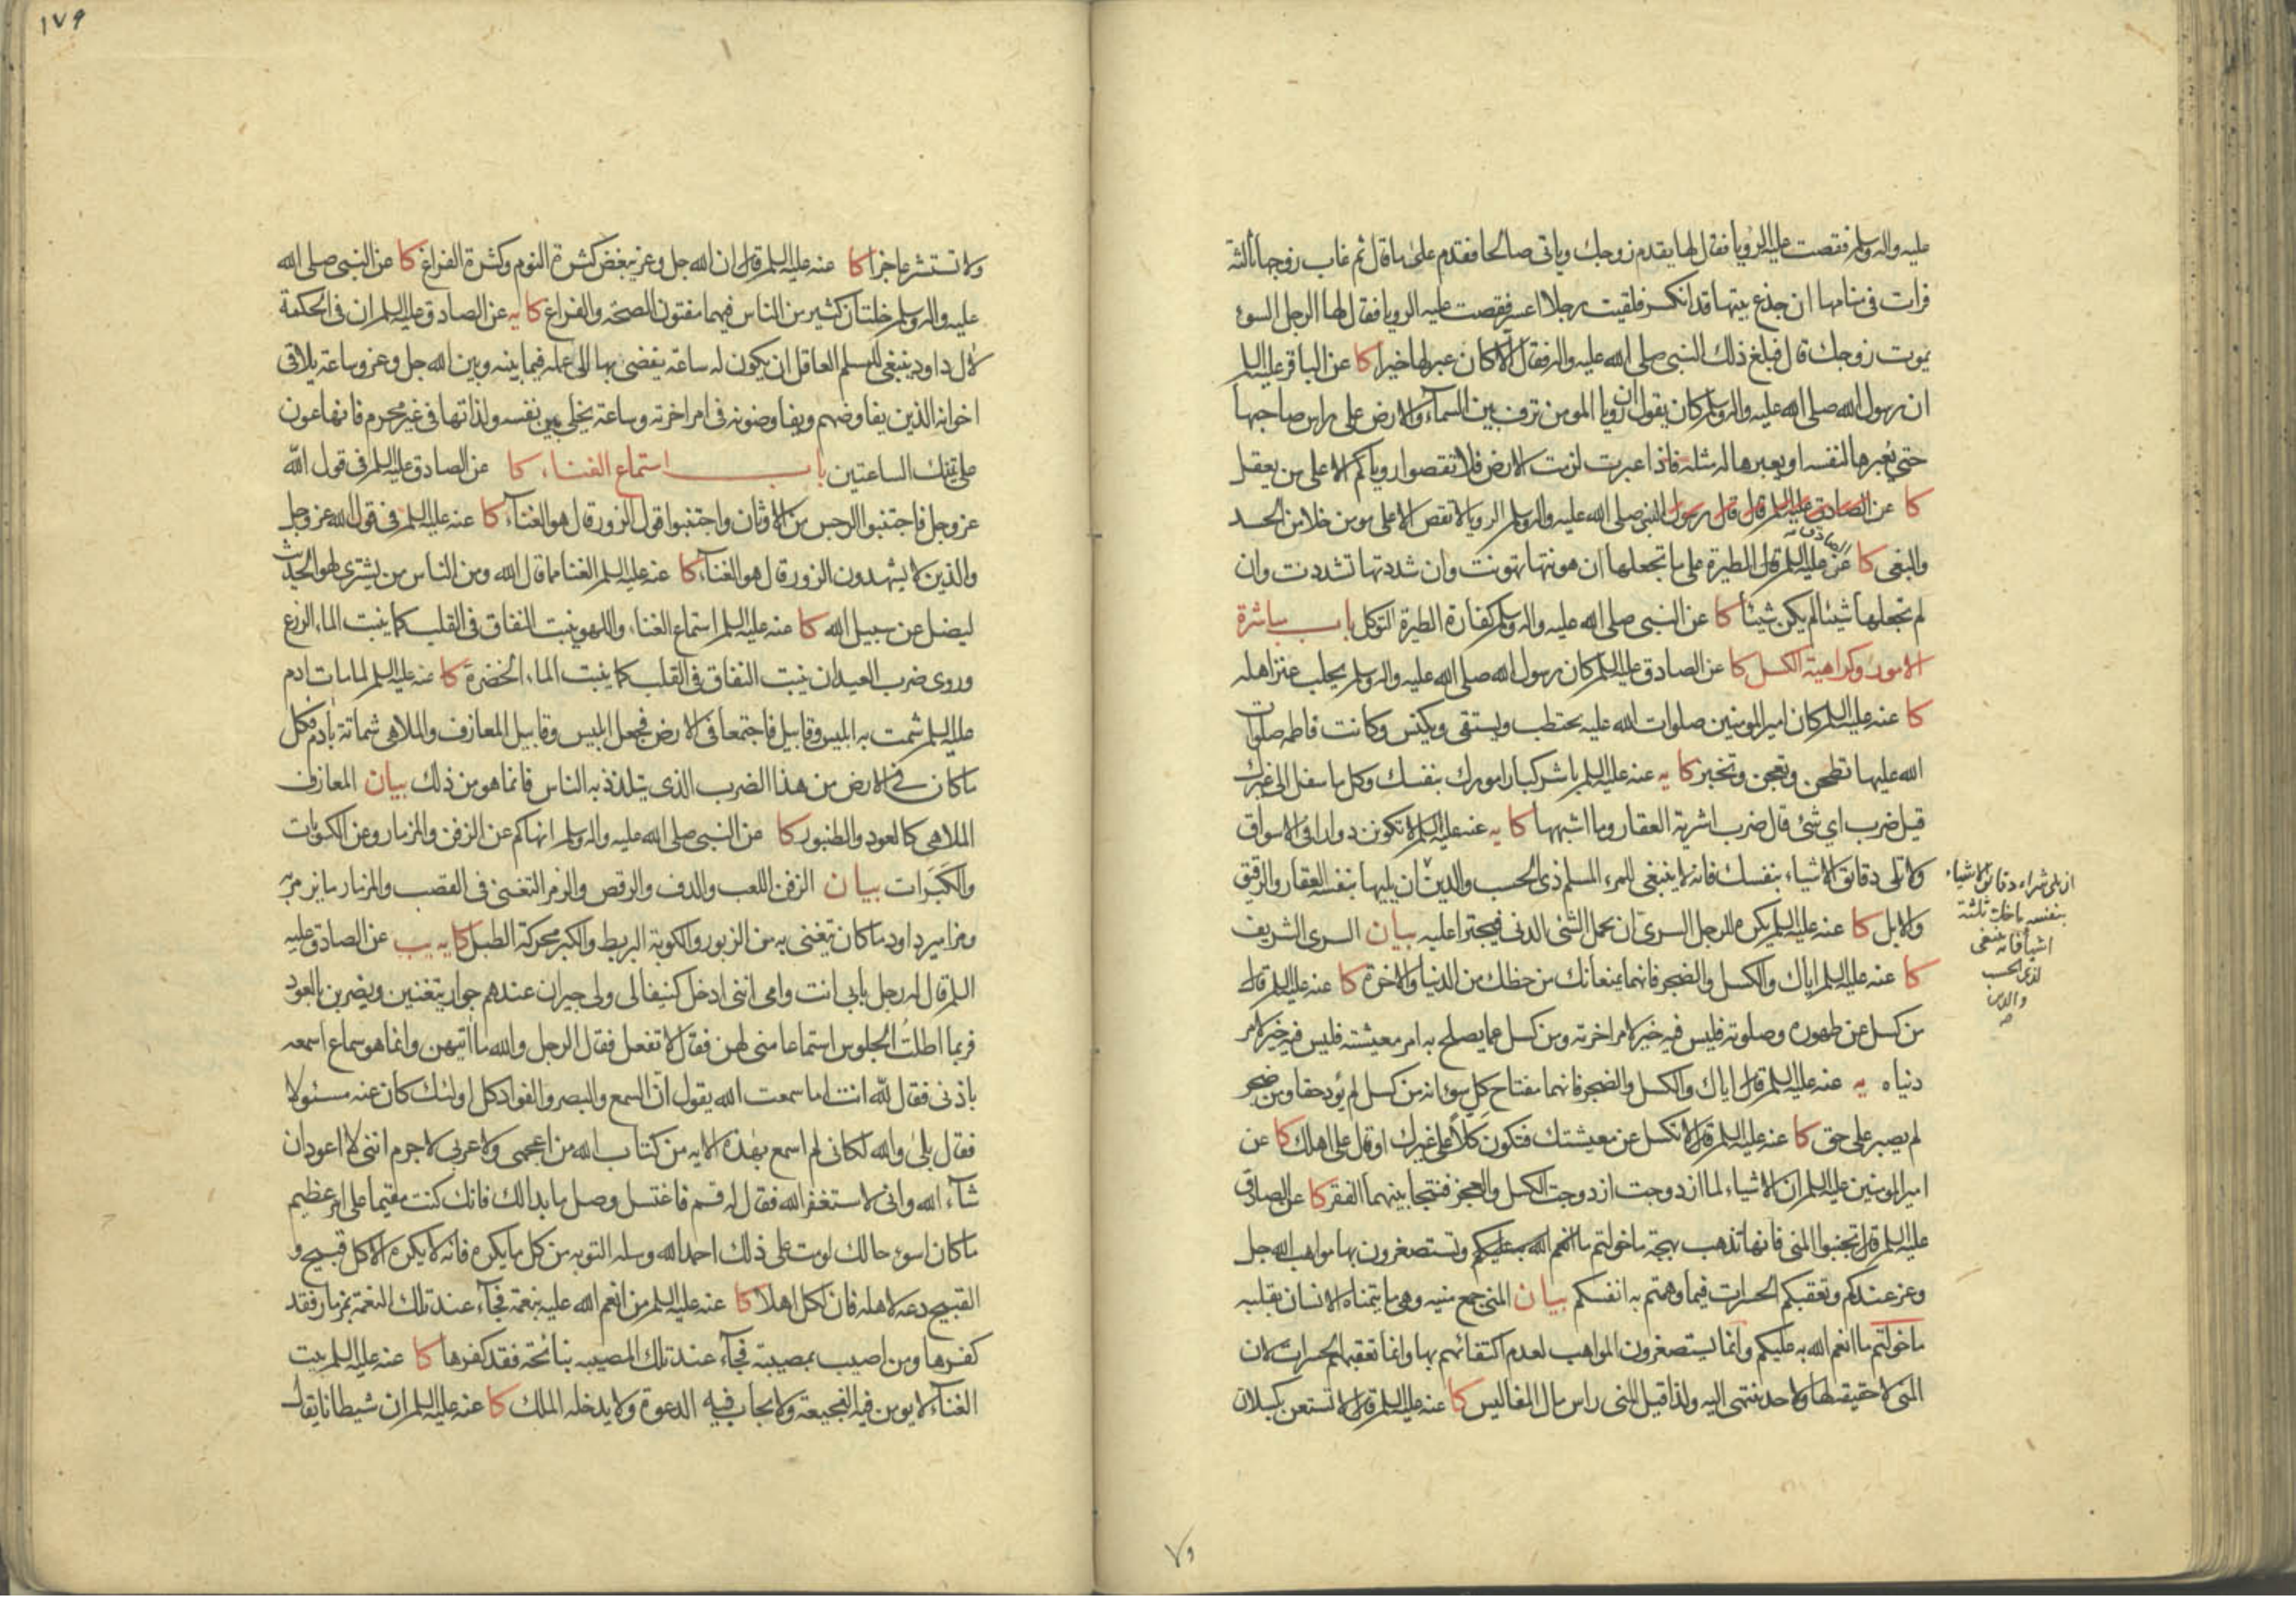 عليه واله وسلم فقصت عليه الرويا فقال لها يقدم زوجك وياتى صالحا فقدم على ما قال ثم غاب زوجها ثالثة
فرات فى منامها ان جذع بيتها قد انكسر فلقيت رجلا اعسر فقصت عليه الرويا فقال لها الرجل السوء
يموت زوجك قال فبلغ ذلك النبى صلى الله عليه واله فقال الا كان عبر لها خيرا كا عن الباقر عليه السلم
ان رسول الله صلى الله عليه واله وسلم كان يقول ان رويا المومن ترف بين السمآء والارض على راس صاحبها
حتى يعبرها لنفسه او يعبرها له مثله فاذا عبرت لزمت الارض فلا تقصوا روياكم الا على من يعقل
كا عن الصادق عليه السلم قال قال رسول النبى صلى الله عليه واله وسلم الرويا لا تقص الا على مومن خلا من الحسد
والبغى كا عن الصادق عليه السلم قال الطيرة على ما تجعلها ان هونتها تهونت وان شددتها تشددت وان
لم تجعلها شيئا لم يكن شيئا كا عن النبى صلى الله عليه واله وسلم كفارة الطيرة التوكل باب مباشرة
الامور وكراهية الكسل كا عن الصادق عليه السلم كان رسول الله صلى الله عليه واله وسلم يحلب عنز اهله
كا عنه عليه السلم كان امير المومنين صلوات الله عليه يحتطب ويستقى ويكنس وكانت فاطمه صلوات
الله عليها تطحن وتعجن وتخبز كا يه عنه عليه السلم باشر كبار امورك بنفسك وكل ما سفل الى غيرك
قيل ضرب اي شئ قال ضرب اشرية العقار وما اشبهها كا يه عنه عليه السلم لا تكونن دوارا فى الاسواق
ولا تلى دقائق الاشياء بنفسك فانه لا ينبغى للمرء المسلم ذى الحسب والدين ان يليها بنفسه العقار والرقيق
ازيلى شراء دقائق الاشياء
بنفسه ما خلا ثلثة
اشيا فانه ينبغى
لذى الحسب
والدين
والابل كا عنه عليه السلم يكره للرجل السرى ان يحمل الشئ الدنى فيجترا عليه بيان السرى الشريف
كا عنه عليه السلم اياك والكسل والضجر فانهما يمنعانك من حظك من الدنيا والاخرة كا عنه عليه السلم قال
من كسل عن طهوره وصلوته فليس فيه خير لامر اخرته ومن كسل عما يصلح به امر معيشته فليس فيه خير لامر
دنياه يه عنه عليه السلم قال اياك والكسل والضجر فانهما مفتاح كل سوء انه من كسل لم يؤد حقا ومن ضجر
لم يصبر على حق كا عنه عليه السلم قال لا تكسل عن معيشتك فتكون كلا على غيرك او قال على اهلك كا عن
امير المومنين عليه السلم ان الاشياء لما ازدوجت ازدوجت الكسل والعجز فنتجا بينهما الفقر كا عن الصادق
عليه السلم قال تجنبوا المنى فانها تذهب بهجة ما خولتم ما انعم الله به عليكم وتستصغرون بها مواهب الله جل
وعز عندكم وتعقبكم الحسرات فيما وهمتم به انفسكم بيان المنى جمع منيه وهى ما يتمناه الانسان بقلبه
ما خولتم ما انعم الله به عليكم وانما يستصغرون المواهب لعدم اكتفائهم بها وانما تعقبهم الحسرات لان
المنى لا حقيقة لها ولا حد ينتهى اليه ولذا قيل المنى راس مال المفاليس كا عنه عليه السلم قال لا تستعن بكسلان
٧٩
١٧٩
ولا تستشر عاجزا كا عنه عليه السلم قال ان الله جل وعز يبغض كثرة النوم وكثرة الفراغ كا عن النبى صلى الله
عليه واله وسلم خلتان كثير من الناس فيهما مفتون الصحة والفراغ كا يه عن الصادق عليه السلم ان فى الحكمة
لال داود ينبغى للمسلم العاقل ان يكون له ساعة يفضى بها الى عمله فيما بينه وبين الله جل وعز وساعة يلاقى
اخوانه الذين يفاوضهم ويفاوضونه فى امر اخرته وساعة يخلى بين نفسه ولذاتها فى غير محرم فانها عون
على تينك الساعتين باب استماع الغناء كا عن الصادق عليه السلم فى قول الله
عز وجل فاجتنبوا الرجس من الاوثان واجتنبوا قول الزور قال هو الغنآء كا عنه عليه السلم فى قول الله عز وجل
والذين لا يشهدون الزور قال هو الغنآء كا عنه عليه السلم الغنا مما قال الله ومن الناس من يشترى لهو الحديث
ليضل عن سبيل الله كا عنه عليه السلم استماع الغناء واللهو ينبت النفاق فى القلب كما ينبت الماء الزرع
وروى ضرب العيدان ينبت النفاق فى القلب كما ينبت الماء الخضرة كا عنه عليه السلم لما مات ادم
عليه السلم شمت به ابليس وقابيل فاجتمعا فى الارض فجعل ابليس وقابيل المعازف والملاهى شماتة بادم فكل
ما كان فى الارض من هذا الضرب الذى يتلذذ به الناس فانما هو من ذلك بيان المعازف
الملاهى كالعود والطنبور كا عن النبى صلى الله عليه واله وسلم انهاكم عن الزفن والمزمار وعن الكوبات
والكبرات بيان الزفن اللعب والدف والرقص والزمر التغنى فى القصب والمزمار ما يزمر به
ومزامير داود ما كان يتغنى به من الزبور والكوبة البربط والكبر محركة الطبل كا يه يب عن الصادق عليه
السلم قال له رجل بابى انت وامى اننى ادخل كنيفا لى ولى جيران عندهم جوار يتغنين ويضربن بالعود
فربما اطلت الجلوس استماعا منى لهن فقال لا تفعل فقال الرجل والله ما اتيهن وانما هو سماع اسمعه
باذنى فقال لله انت اما سمعت الله يقول ان السمع والبصر والفواد كل اولئك كان عنه مسئولا
فقال بلى والله لكانى لم اسمع بهذه الايه من كتاب الله من اعجمى ولا عربى لا جرم اننى لا اعود ان
شآء الله وانى لاستغفر الله فقال له قم فاغتسل وصل ما بدالك فانك كنت مقيما على امر عظيم
ما كان اسوء حالك لو مت على ذلك احمد الله وسله التوبه من كل ما يكره فانه لا يكره الا كل قبيح و
القبيح دعه لاهله فان لكل اهلا كا عنه عليه السلم من انعم الله عليه بنعمة فجآء عند تلك النعمة بمزمار فقد
كفرها ومن اصيب بمصيبة فجآء عند تلك المصيبه بنائحة فقد كفرها كا عنه عليه السلم بيت
الغنآء لا يومن فيه الفجيعة ولا يجاب فيه الدعوة ولا يدخله الملك كا عنه عليه السلم ان شيطانا يقال